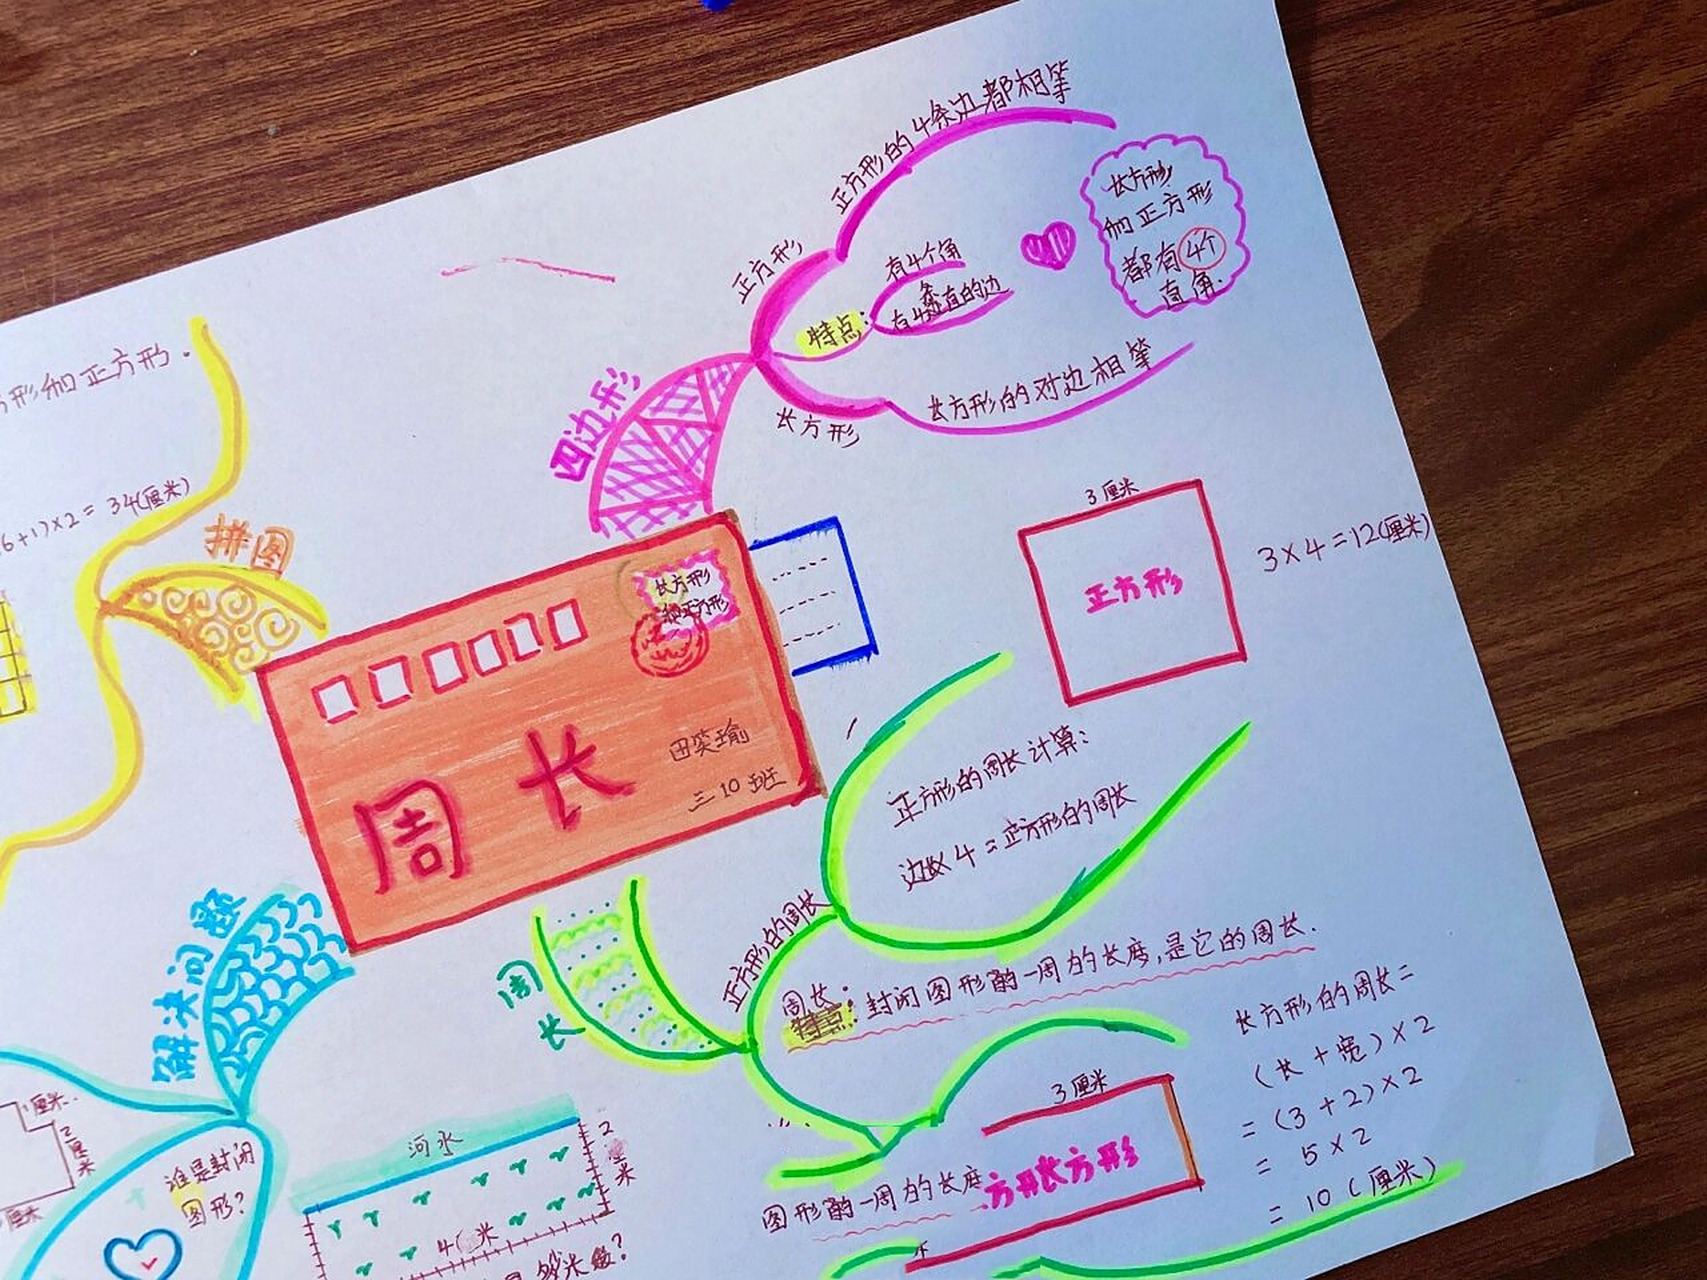 正方形的4条边都相等
正方形
有4个角
特点:
有4条直的边
长方形
和正方形
都有4个
直角.
长方形的对边相等
长方形
四边形
形和正方形.
6+1)×2=34(厘米)
拼图
长方形
和正方形
周长
田笑瑜
三10班
3厘米
正方形
3×4=12(厘米)
正方形的周长计算:
边长×4=正方形的周长
正方形的周长
周长:
特点:
封闭图形的一周的长度,是它的周长.
周长
解决问题
1厘米.
2厘米
厘米
谁是封闭
图形?
河水
2
米
4
米
多少米
?
3厘米
图形的一周的长度
方形长方形
长方形的周长=
(长+宽)×2
=(3+2)×2
=5×2
=10(厘米)